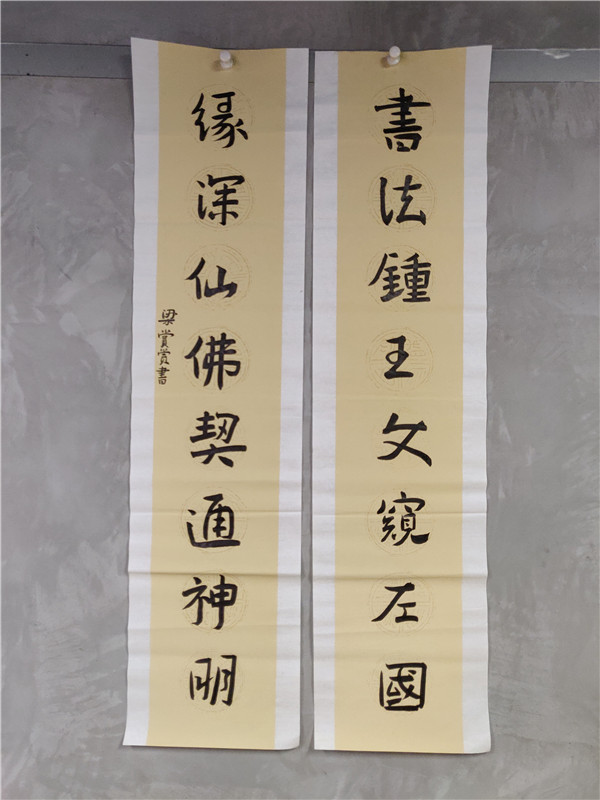 書法鍾王文窺左國
緣深仙佛契通神明
梁賞賞書